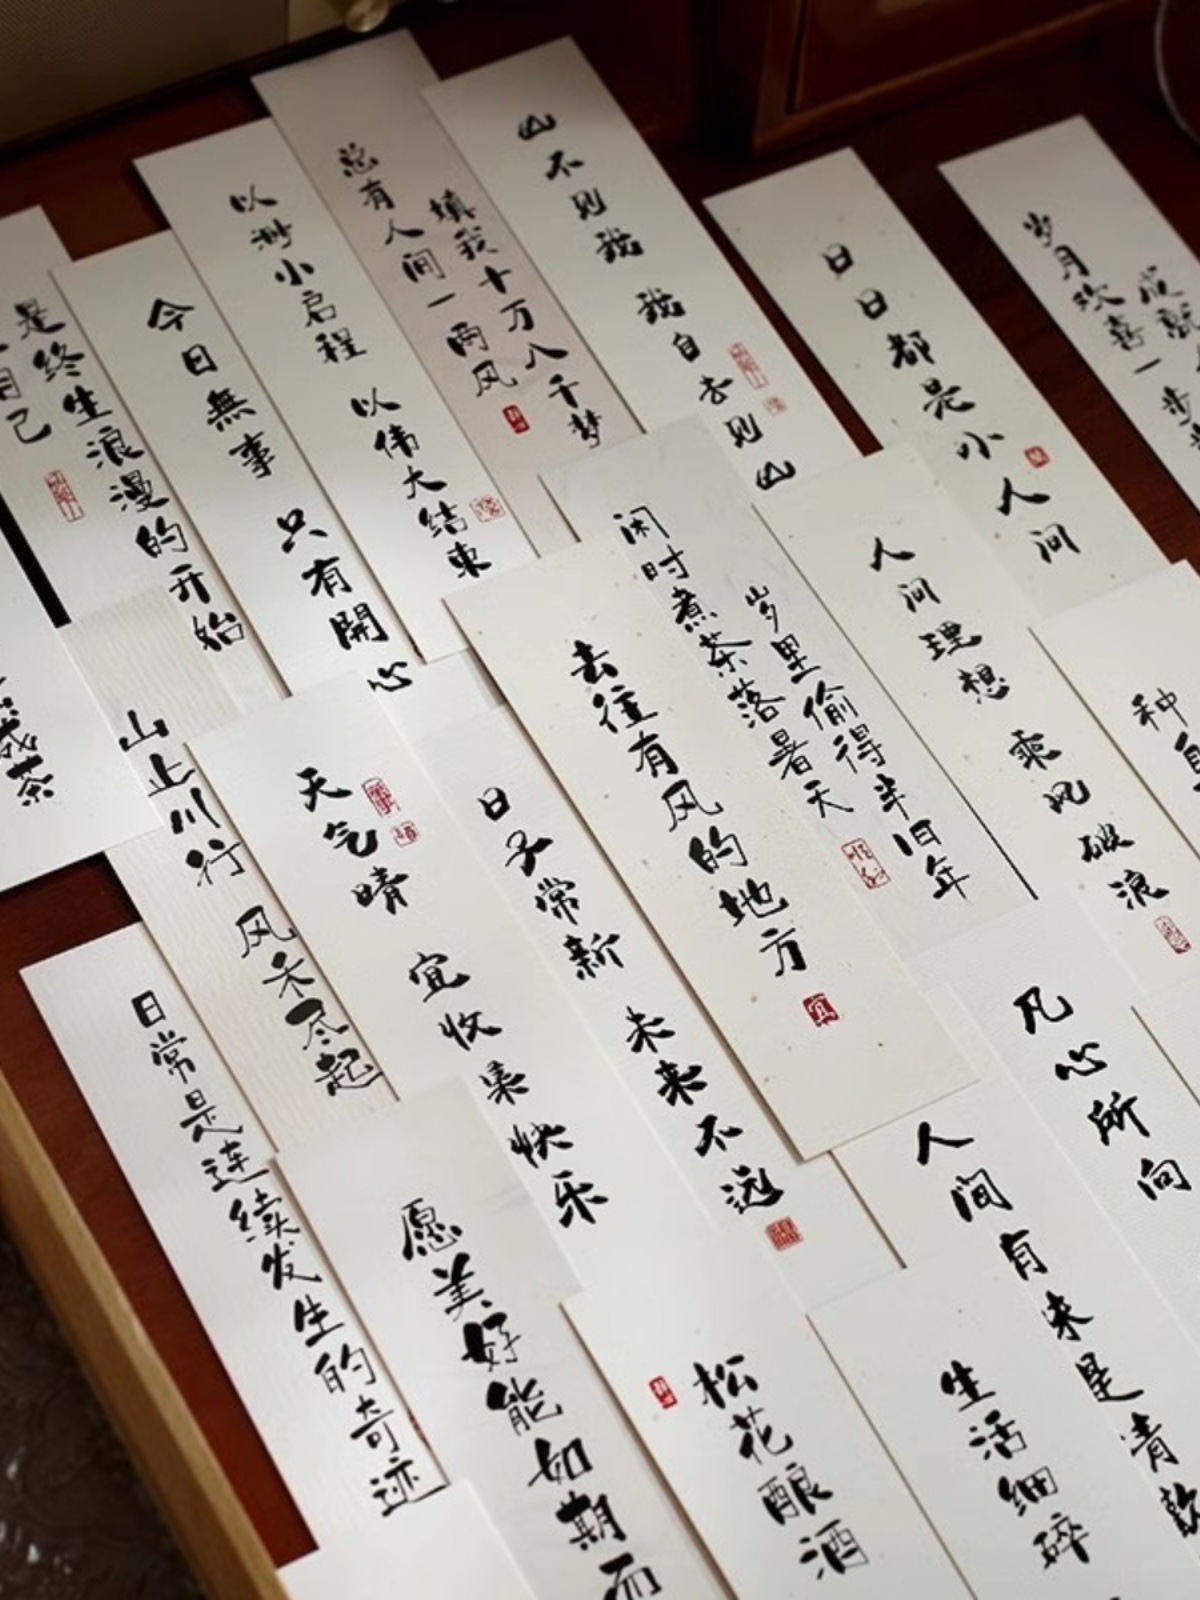 是终生浪漫的开始
自己
今日無事 只有開心
以渺小启程 以伟大结束
总有人间一两风
填我十万八千梦
山不见我 我自去见山
日日都是小人间
岁月欢喜一步
成
茶
山止川行 风禾尽起
天气晴 宜收集快乐
日子常新 未来不远
去往有风的地方
宜
闲时煮茶落暑天
岁里偷得半旧年
人间理想 乘风破浪
种
日常是连续发生的奇迹
愿美好能如期而
松花酿酒
凡心所向
人间有味是清欢
生活细碎